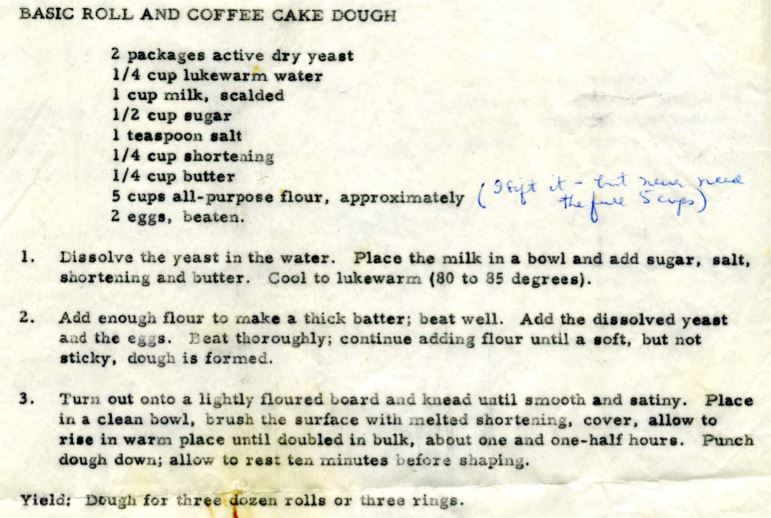 BASIC ROLL AND COFFEE CAKE DOUGH
2 packages active dry yeast
1/4 cup lukewarm water
1 cup milk, scalded
1/2 cup sugar
1 teaspoon salt
1/4 cup shortening
1/4 cup butter
5 cups all-purpose flour, approximately (I sift it - but never need
the full 5 cups)
2 eggs, beaten.
1. Dissolve the yeast in the water. Place the milk in a bowl and add sugar, salt,
shortening and butter. Cool to lukewarm (80 to 85 degrees).
2. Add enough flour to make a thick batter; beat well. Add the dissolved yeast
and the eggs. Beat thoroughly; continue adding flour until a soft, but not
sticky, dough is formed.
3. Turn out onto a lightly floured board and knead until smooth and satiny. Place
in a clean bowl, brush the surface with melted shortening, cover, allow to
rise in warm place until doubled in bulk, about one and one-half hours. Punch
dough down; allow to rest ten minutes before shaping.
Yield: Dough for three dozen rolls or three rings.